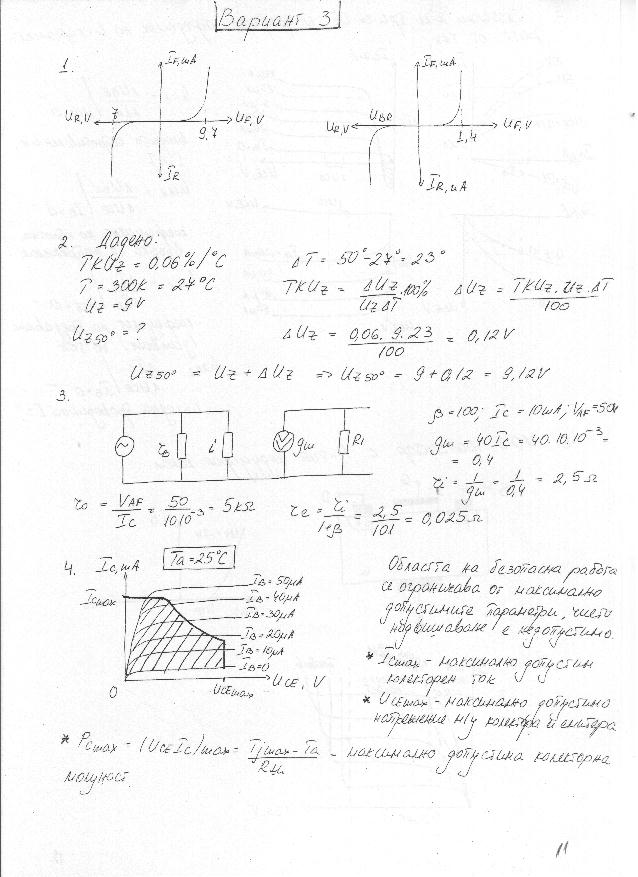 Вариант 3
1.
IF, mA
IF, mA
UR, V 7 9,7 UF, V
UR, V UBR 1,4 UF, V
IR
IR, mA
2. Дадено:
TKUz = 0,06%/°C ΔT = 50° - 27° = 23°
T = 300K = 27°C TKUz = ΔUz/UzΔT .100% ΔUz = TKUz.Uz.ΔT/100
Uz = 9V
Uz50° = ? ΔUz = 0,06.9.23/100 = 0,12V
Uz50° = Uz + ΔUz => Uz50° = 9 + 0,12 = 9,12V
3.
β = 100; Ic = 10mA; VAF = 50V
gm = 40Ic = 40.10.10⁻³ =
= 0,4
ri = 1/gm = 1/0,4 = 2,5Ω
rв i gm Ri
ro = VAF/Ic = 50/10.10⁻³ = 5kΩ re = ri/1+β = 2,5/101 = 0,025Ω
4. Ic, mA Ta = 25°C
Icmax
IB = 50μA
IB = 40μA
IB = 30μA
IB = 20μA
IB = 10μA
IB = 0
0 UCEmax UCE, V
Областта на безопасна работа
се ограничава от максимално
допустимите параметри, чието
надвишаване е недопустимо.
* Icmax - максимално допустим
колекторен ток
* UCEmax - максимално допустимо
напрежение м/у колектора и емитера
* Pcmax = (UCE Ic)max = Tjmax - Ta/Rth - максимално допустима колекторна
мощност.
11